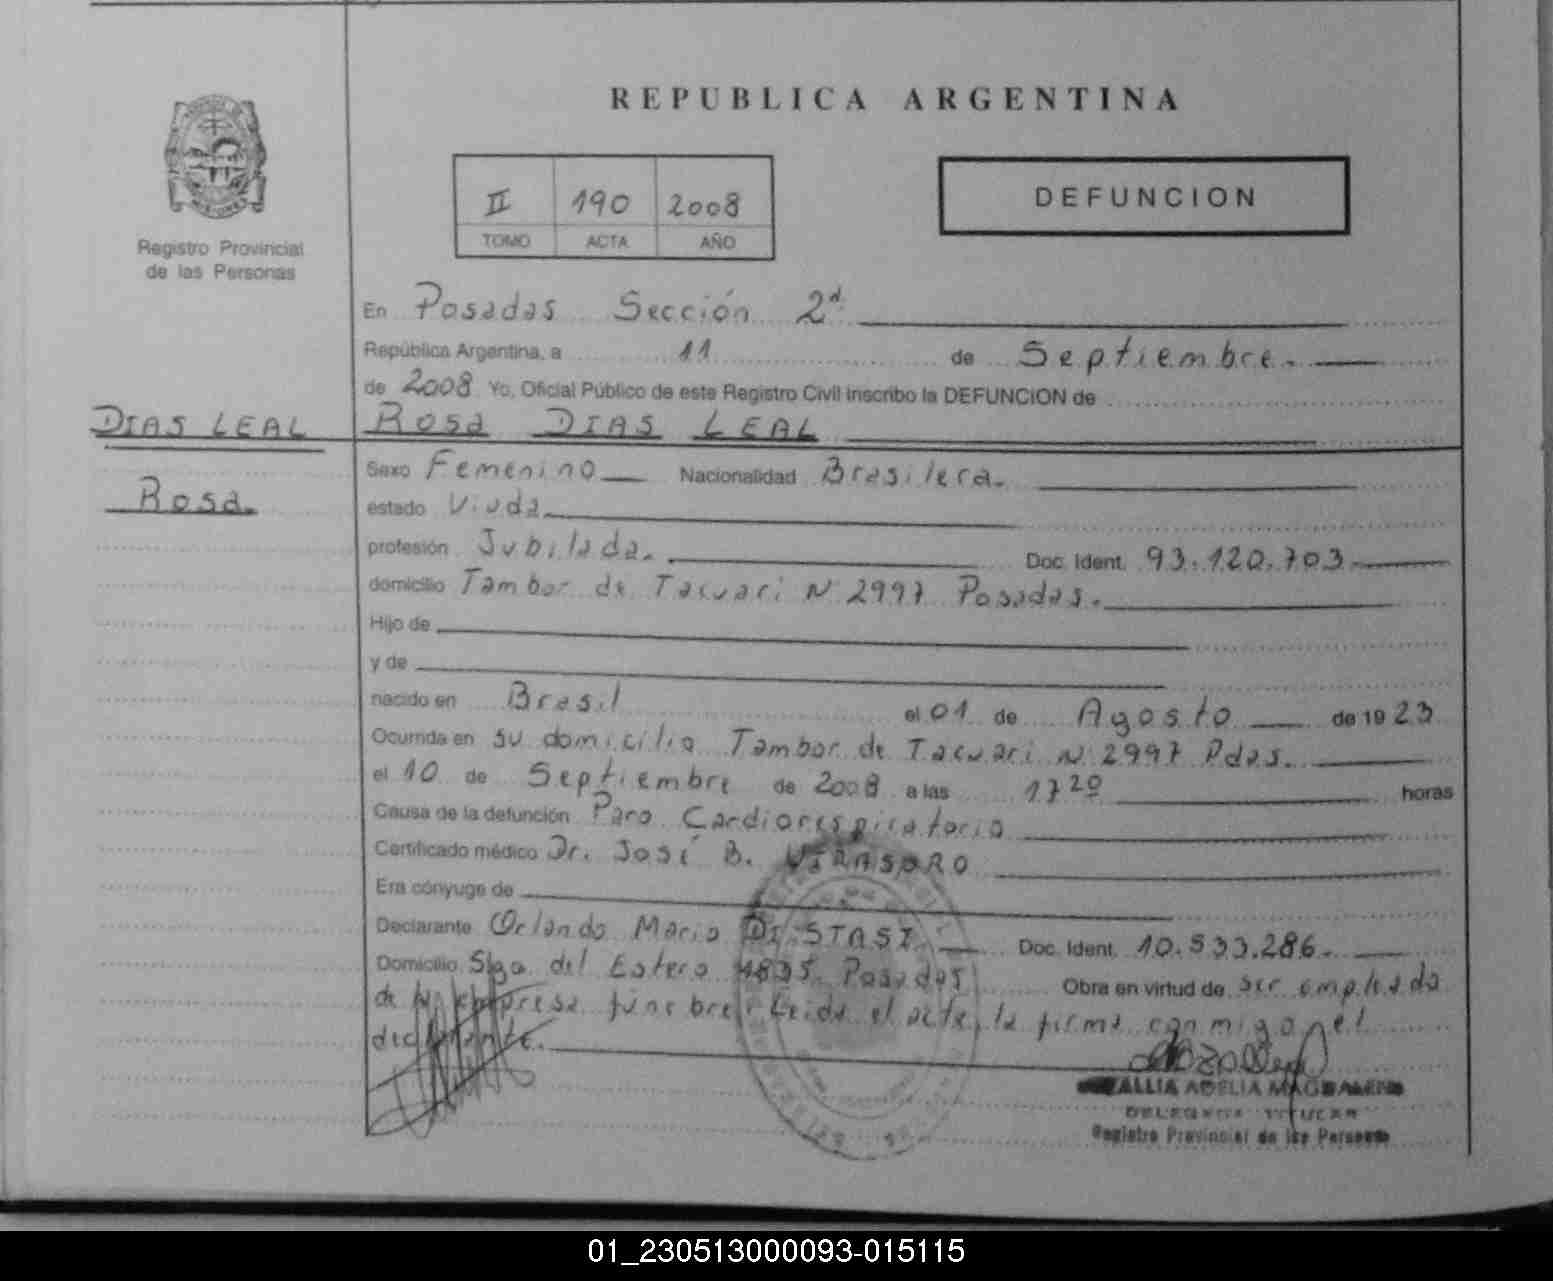 REPUBLICA ARGENTINA
Registro Provincial
de las Personas
II 190 2008
TOMO ACTA AÑO
DEFUNCION
En Posadas Sección 2ª
República Argentina, a 11 de Septiembre.
de 2008 Yo, Oficial Público de este Registro Civil inscribo la DEFUNCION de
DIAS LEAL
Rosa.
Rosa DIAS LEAL
Sexo Femenino Nacionalidad Brasilera.
estado Viuda.
profesión Jubilada. Doc. Ident. 93.120.703
domicilio Tambor de Tacuari N° 2997 Posadas.
Hijo de
y de
nacido en Brasil el 01 de Agosto de 1923
Ocurrida en su domicilio Tambor de Tacuari N° 2997 Pdas.
el 10 de Septiembre de 2008 a las 17 20 horas
Causa de la defunción Paro Cardiorespiratorio
Certificado médico Dr. José B. VIRASORO
Era cónyuge de
Declarante Orlando Mario DI STASI. Doc. Ident. 10.533.286.
Domicilio Sgo. del Estero 4835 Posadas Obra en virtud de ser empleado
de la empresa fúnebre. Leida el acta, la firma conmigo, el
declarante.
ADELIA MAGDALENA
DELEGADA TITULAR
Registro Provincial de las Personas
01_230513000093-015115